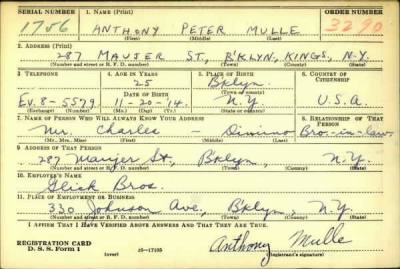 SERIAL NUMBER 1. NAME (Print) ORDER NUMBER
1756 ANTHONY PETER MULLE 3290
(First) (Middle) (Last)
2. ADDRESS (Print)
287 MAUJER ST., B'KLYN, KINGS, N.Y.
(Number and street or R. F. D. number) (Town) (County) (State)
3. TELEPHONE 4. AGE IN YEARS 5. PLACE OF BIRTH 6. COUNTRY OF CITIZENSHIP
25 Bklyn.
DATE OF BIRTH (Town or county)
Ev. 8-5579 11-20-14 N.Y. U.S.A.
(Exchange) (Number) (Mo.) (Day) (Yr.) (State or country)
7. NAME OF PERSON WHO WILL ALWAYS KNOW YOUR ADDRESS 8. RELATIONSHIP OF THAT PERSON
Mr. Charles — Dimino Bro.-in-law
(Mr., Mrs., Miss) (First) (Middle) (Last)
9. ADDRESS OF THAT PERSON
287 Maujer St., Bklyn, N.Y.
(Number and street or R. F. D. number) (Town) (County) (State)
10. EMPLOYER'S NAME
Glick Bros.
11. PLACE OF EMPLOYMENT OR BUSINESS
330 Johnson Ave, Bklyn, N.Y.
(Number and street or R. F. D. number) (Town) (County) (State)
I AFFIRM THAT I HAVE VERIFIED ABOVE ANSWERS AND THAT THEY ARE TRUE.
REGISTRATION CARD
D. S. S. Form 1 (over) 16—17105 Anthony Mulle
(Registrant's signature)